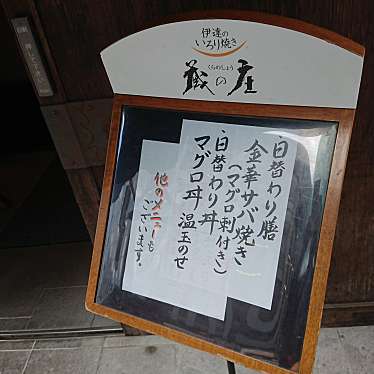 伊達の
いろり焼き
くらのしょう
蔵の庄
日替わり膳
金華サバ焼き
(マグロ刺付き)
日替わり丼
マグロ丼 温玉のせ
他のメニューも
ございます。